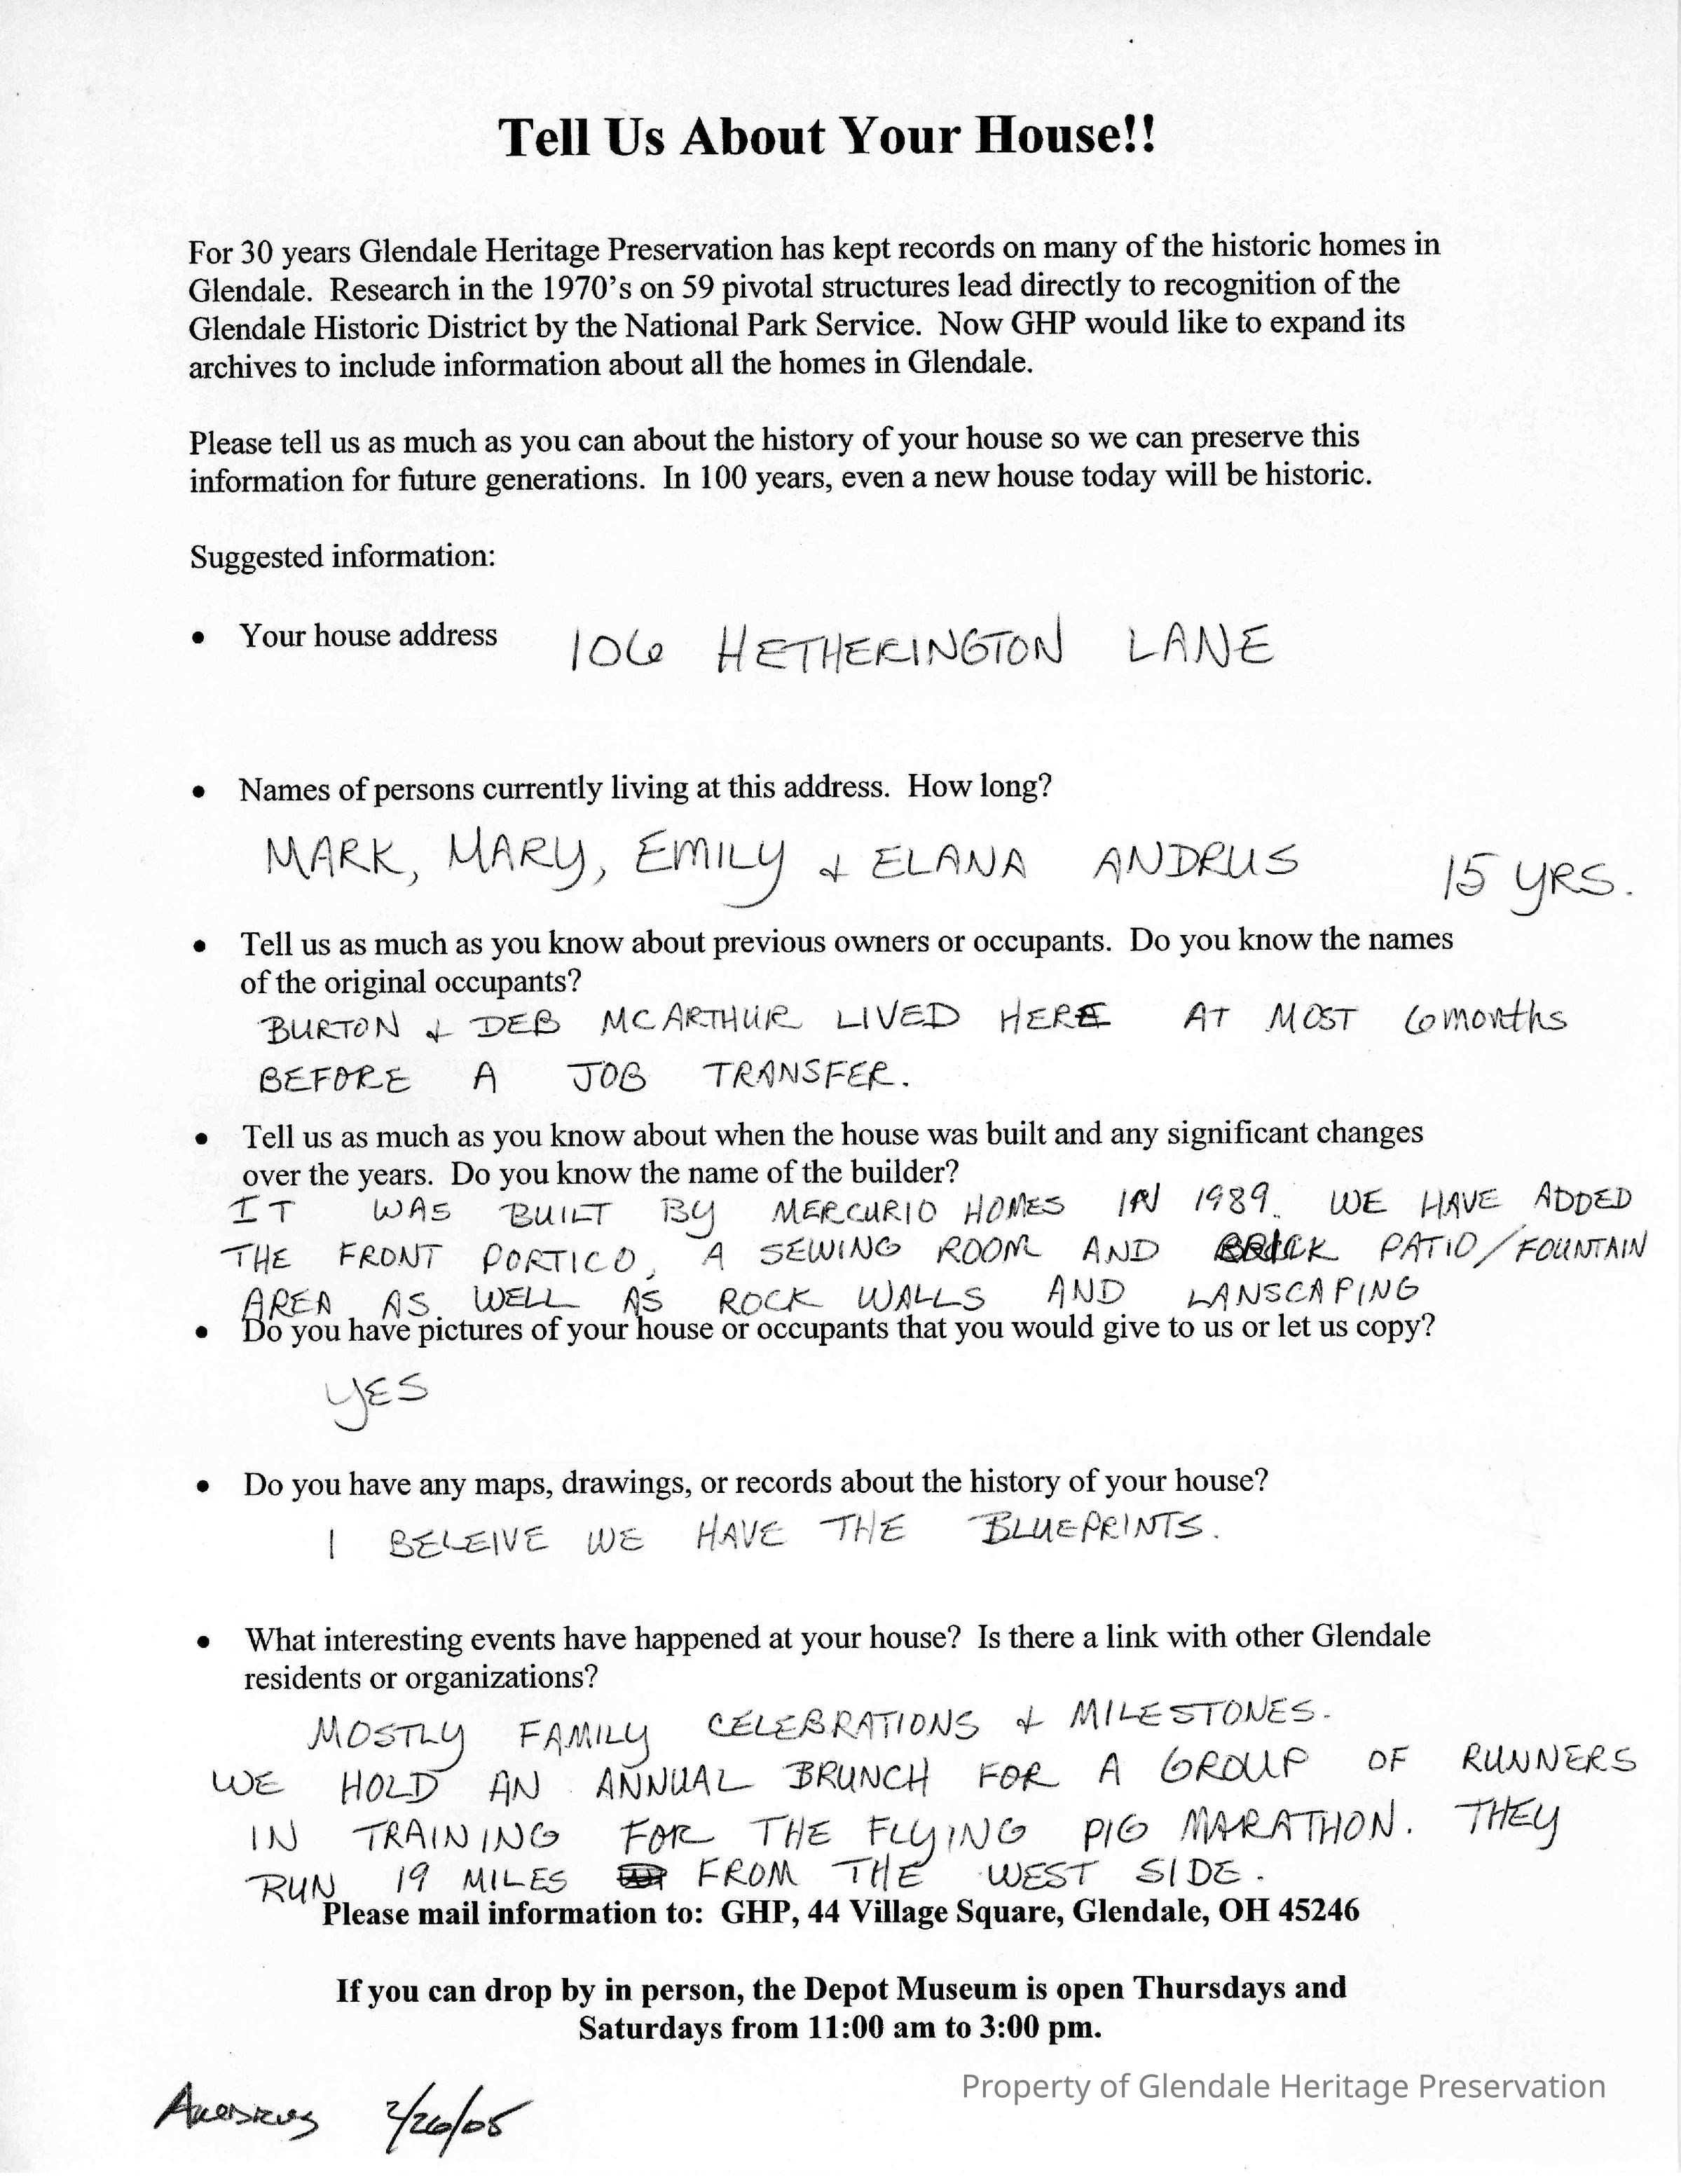 Tell Us About Your House!!
For 30 years Glendale Heritage Preservation has kept records on many of the historic homes in
Glendale. Research in the 1970's on 59 pivotal structures lead directly to recognition of the
Glendale Historic District by the National Park Service. Now GHP would like to expand its
archives to include information about all the homes in Glendale.
Please tell us as much as you can about the history of your house so we can preserve this
information for future generations. In 100 years, even a new house today will be historic.
Suggested information:
• Your house address 106 HETHERINGTON LANE
• Names of persons currently living at this address. How long?
MARK, MARY, EMILY & ELANA ANDRUS 15 YRS.
• Tell us as much as you know about previous owners or occupants. Do you know the names
of the original occupants?
BURTON & DEB MCARTHUR LIVED HERE AT MOST 6 months
BEFORE A JOB TRANSFER.
• Tell us as much as you know about when the house was built and any significant changes
over the years. Do you know the name of the builder?
IT WAS BUILT BY MERCURIO HOMES IN 1989. WE HAVE ADDED
THE FRONT PORTICO, A SEWING ROOM AND BRICK PATIO/FOUNTAIN
AREA AS WELL AS ROCK WALLS AND LANSCAPING
• Do you have pictures of your house or occupants that you would give to us or let us copy?
YES
• Do you have any maps, drawings, or records about the history of your house?
I BELEIVE WE HAVE THE BLUEPRINTS.
• What interesting events have happened at your house? Is there a link with other Glendale
residents or organizations?
MOSTLY FAMILY CELEBRATIONS & MILESTONES.
WE HOLD AN ANNUAL BRUNCH FOR A GROUP OF RUNNERS
IN TRAINING FOR THE FLYING PIG MARATHON. THEY
RUN 19 MILES FROM THE WEST SIDE.
Please mail information to: GHP, 44 Village Square, Glendale, OH 45246
If you can drop by in person, the Depot Museum is open Thursdays and
Saturdays from 11:00 am to 3:00 pm.
Property of Glendale Heritage Preservation
ANDRUS 2/26/05